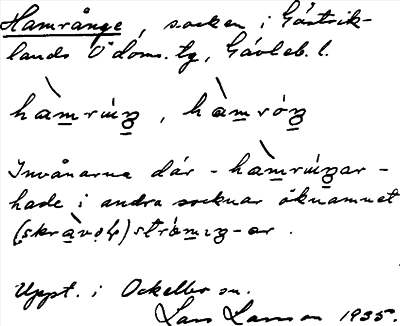 Hamrånge, socken i Gästrik-
lands Ö. doms. tg, Gävleb. l.
hàmrúŋ, hàmróŋ
Invånarna där - hàmrúŋar -
hade i andra socknar öknamnet
strömıŋ-ar.
Uppt. i Ockelbo sn.
Lars Larsson 1935.